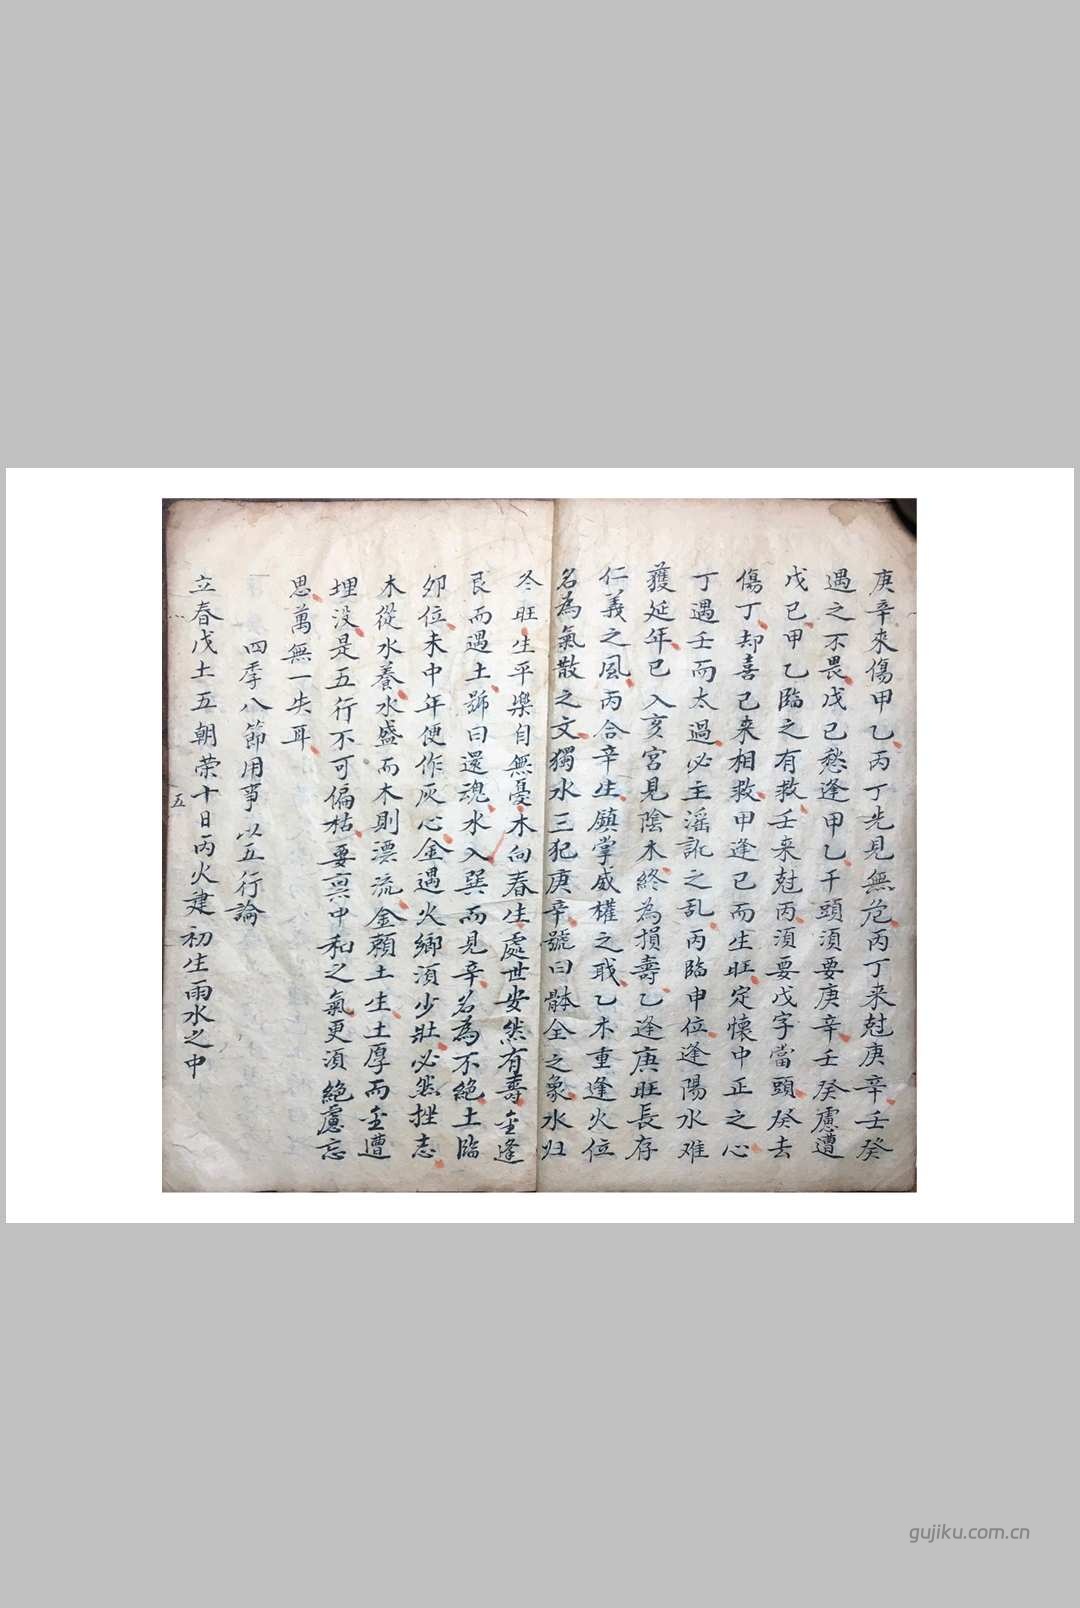 庚辛來傷甲乙丙丁先見無危丙丁来尅庚辛壬癸
遇之不畏戊己愁逢甲乙干頭須要庚辛壬癸慮遭
戊己甲乙臨之有救壬来尅丙須要戊字當頭癸去
傷丁却喜己来相救甲逢己而生旺定懷中正之心
丁遇壬而太過必主滛訛之乱丙臨申位逢陽水难
獲延年己入亥宮見陰木終為損壽乙逢庚旺長存
仁義之風丙合辛生鎮掌威權之職乙木重逢火位
名為氣散之文獨水三犯庚辛號曰骵全之象水归
冬旺生平樂自無憂木向春生處世安然有壽金逢
艮而遇土號曰還魂水入巽而見辛名為不絕土臨
卯位未中年便作灰心金遇火鄉須少壯必然挫志
木從水養水盛而木則漂流金頼土生土厚而金遭
埋没是五行不可偏枯要禀中和之氣更須絕慮忘
思萬無一失耳
四季八節用事以五行論
立春戊土五朝荣十日丙火建初生雨水之中
五
gujiku.com.cn